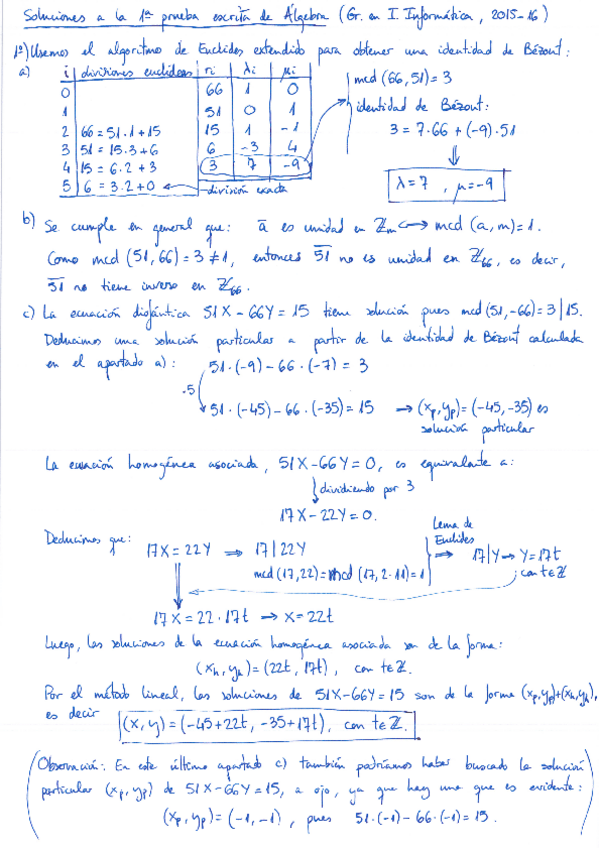 Soluciones a la 1ª prueba escrita de Álgebra (Gr. en I. Informática, 2015-16)
1º) Usemos el algoritmo de Euclides extendido para obtener una identidad de Bézout:
a)
i divisiones euclídeas ri λi μi
0 66 1 0
1 51 0 1
2 66=51·1+15 15 1 -1
3 51=15·3+6 6 -3 4
4 15=6·2+3 3 7 -9
5 6=3·2+0 ← división exacta
mcd(66,51)=3
identidad de Bézout:
3=7·66+(-9)·51
⇓
λ=7, μ=-9
b) Se cumple en general que: ā es unidad en ℤm ⟷ mcd(a,m)=1.
Como mcd(51,66)=3≠1, entonces 51̄ no es unidad en ℤ66, es decir,
51̄ no tiene inverso en ℤ66.
c) La ecuación diofántica 51X-66Y=15 tiene solución pues mcd(51,-66)=3|15.
Deducimos una solución particular a partir de la identidad de Bézout calculada
en el apartado a): 51·(-9)-66·(-7)=3
·5
51·(-45)-66·(-35)=15 → (xp,yp)=(-45,-35) es
solución particular
La ecuación homogénea asociada, 51X-66Y=0, es equivalente a:
↓ dividiendo por 3
17X-22Y=0.
Deducimos que:
17X=22Y ⇒ 17|22Y
mcd(17,22)=mcd(17,2·11)=1
Lema de
Euclides
⇒ 17|Y → Y=17t
con t∈ℤ
17X=22·17t → X=22t
Luego, las soluciones de la ecuación homogénea asociada son de la forma:
(xh,yh)=(22t,17t), con t∈ℤ.
Por el método lineal, las soluciones de 51X-66Y=15 son de la forma (xp,yp)+(xh,yh),
es decir (x,y)=(-45+22t, -35+17t), con t∈ℤ.
(Observación: En este último apartado c) también podríamos haber buscado la solución
particular (xp,yp) de 51X-66Y=15, a ojo, ya que hay una que es evidente:
(xp,yp)=(-1,-1), pues 51·(-1)-66·(-1)=15.)